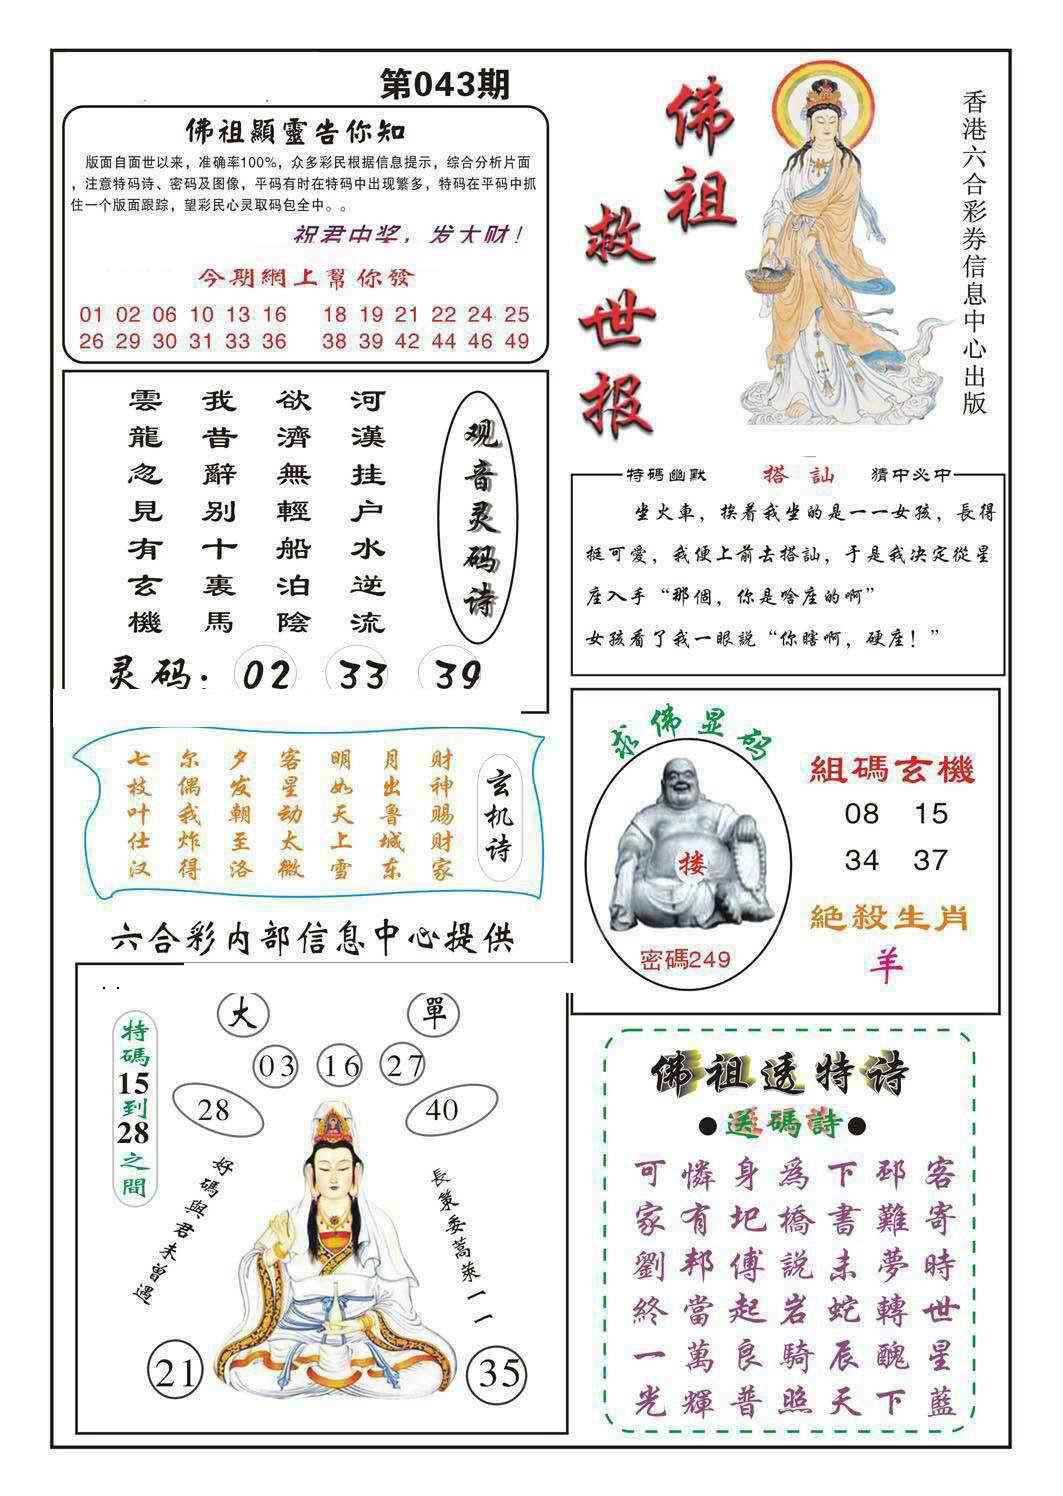 第043期
佛祖顯靈告你知
版面自面世以来，准确率100%，众多彩民根据信息提示，综合分析片面
，注意特码诗、密码及图像，平码有时在特码中出现繁多，特码在平码中抓
住一个版面跟踪，望彩民心灵取码包全中。。
祝君中奖，发大财！
今期網上幫你發
01 02 06 10 13 16 18 19 21 22 24 25
26 29 30 31 33 36 38 39 42 44 46 49
佛祖
救世报
香港六合彩券信息中心出版
观音灵码诗
河漢挂户水逆流
欲濟無輕船泊陰
我昔辭别十裏馬
雲龍忽見有玄機
灵码：02 33 39
特碼幽默 搭訕 猜中必中
坐火車，挨着我坐的是一一女孩，長得
挺可愛，我便上前去搭訕，于是我决定從星
座入手“那個，你是啥座的啊”
女孩看了我一眼説“你瞎啊，硬座！”
玄机诗
财神赐财家
月出鲁城东
明如天上雪
客星动太微
夕发朝至洛
尔偶我炸得
七枝叶仕汉
求佛显码
搂
密碼249
組碼玄機
08 15
34 37
絕殺生肖
羊
六合彩内部信息中心提供
特碼15到28之間
大 單
03 16 27
28 40
好碼與君未曾遇
長策委蒿萊一一
21 35
佛祖透特诗
●送碼詩●
可憐身爲下邳客
家有圯橋書難寄
劉邦傅説未夢時
終當起岩蛇轉世
一萬良騎辰醜星
光輝普照天下藍